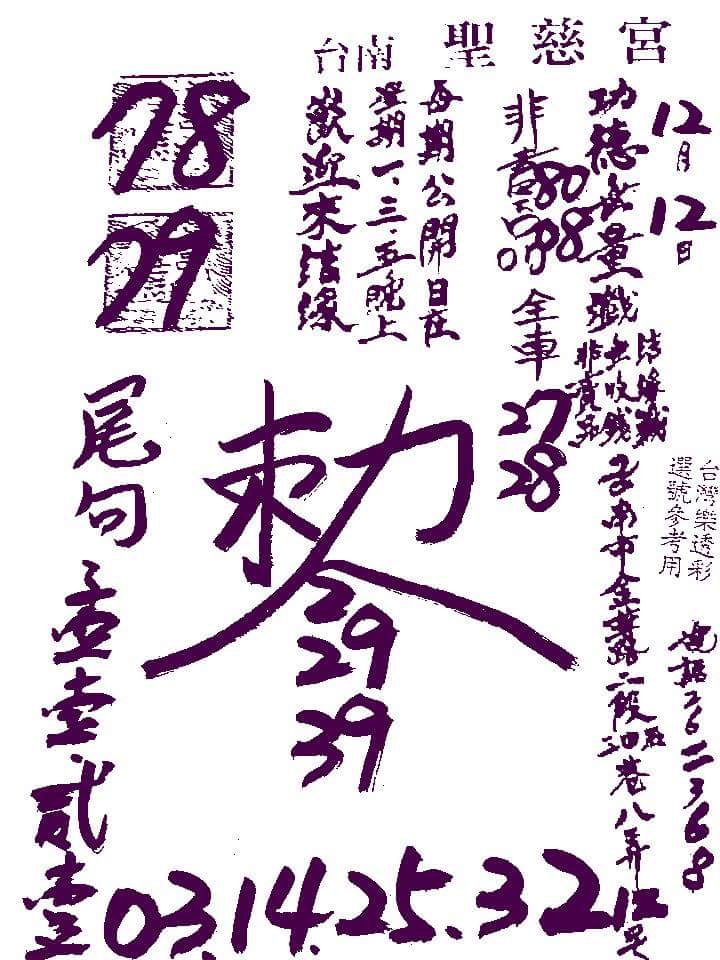 台南 聖慈宮
12月12日
功德無量
結緣
無收錢
非賣品
台灣樂透彩
選號參考用
電話2623368
台南市金華路二段
巷八弄12号
非賣品
80
08
全車
27
28
每期公開日在
星期一、三、五晚上
歡迎來結緣
78
79
敕令
29
39
尾句
壹貳壹
03.14.25.32